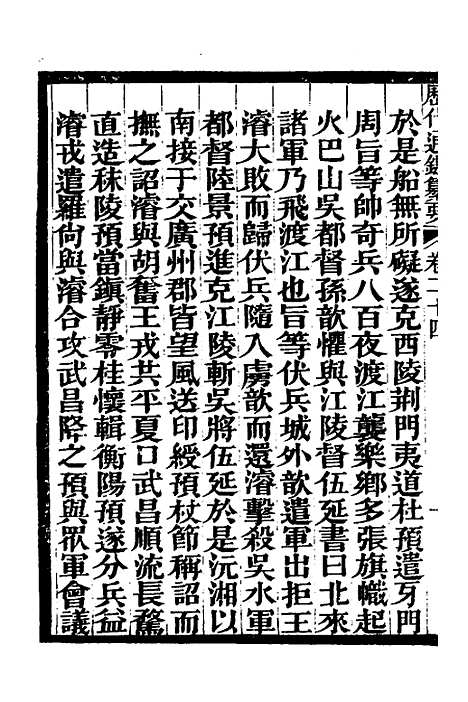 歷代通鑑纂要 卷二十四
於是船無所礙遂克西陵荆門夷道杜預遣牙門
周旨等帥奇兵八百夜渡江襲樂鄉多張旗幟起
火巴山吳都督孫歆懼與江陵督伍延書曰北來
諸軍乃飛渡江也旨等伏兵城外歆遣軍出拒王
濬大敗而歸伏兵隨入虜歆而還濬擊殺吳水軍
都督陸景預進克江陵斬吳將伍延於是沅湘以
南接于交廣州郡皆望風送印綬預杖節稱詔而
撫之詔濬與胡奮王戎共平夏口武昌順流長騖
直造秣陵預當鎮靜零桂懷輯衡陽預遂分兵益
濬戎遣羅尙與濬合攻武昌降之預與眾軍會議